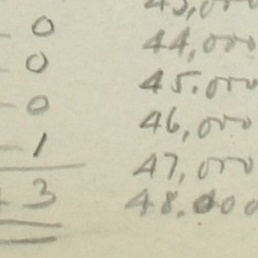 43,000
0 44,000
0 45.000
0 46,000
1 47,000
3 48.000